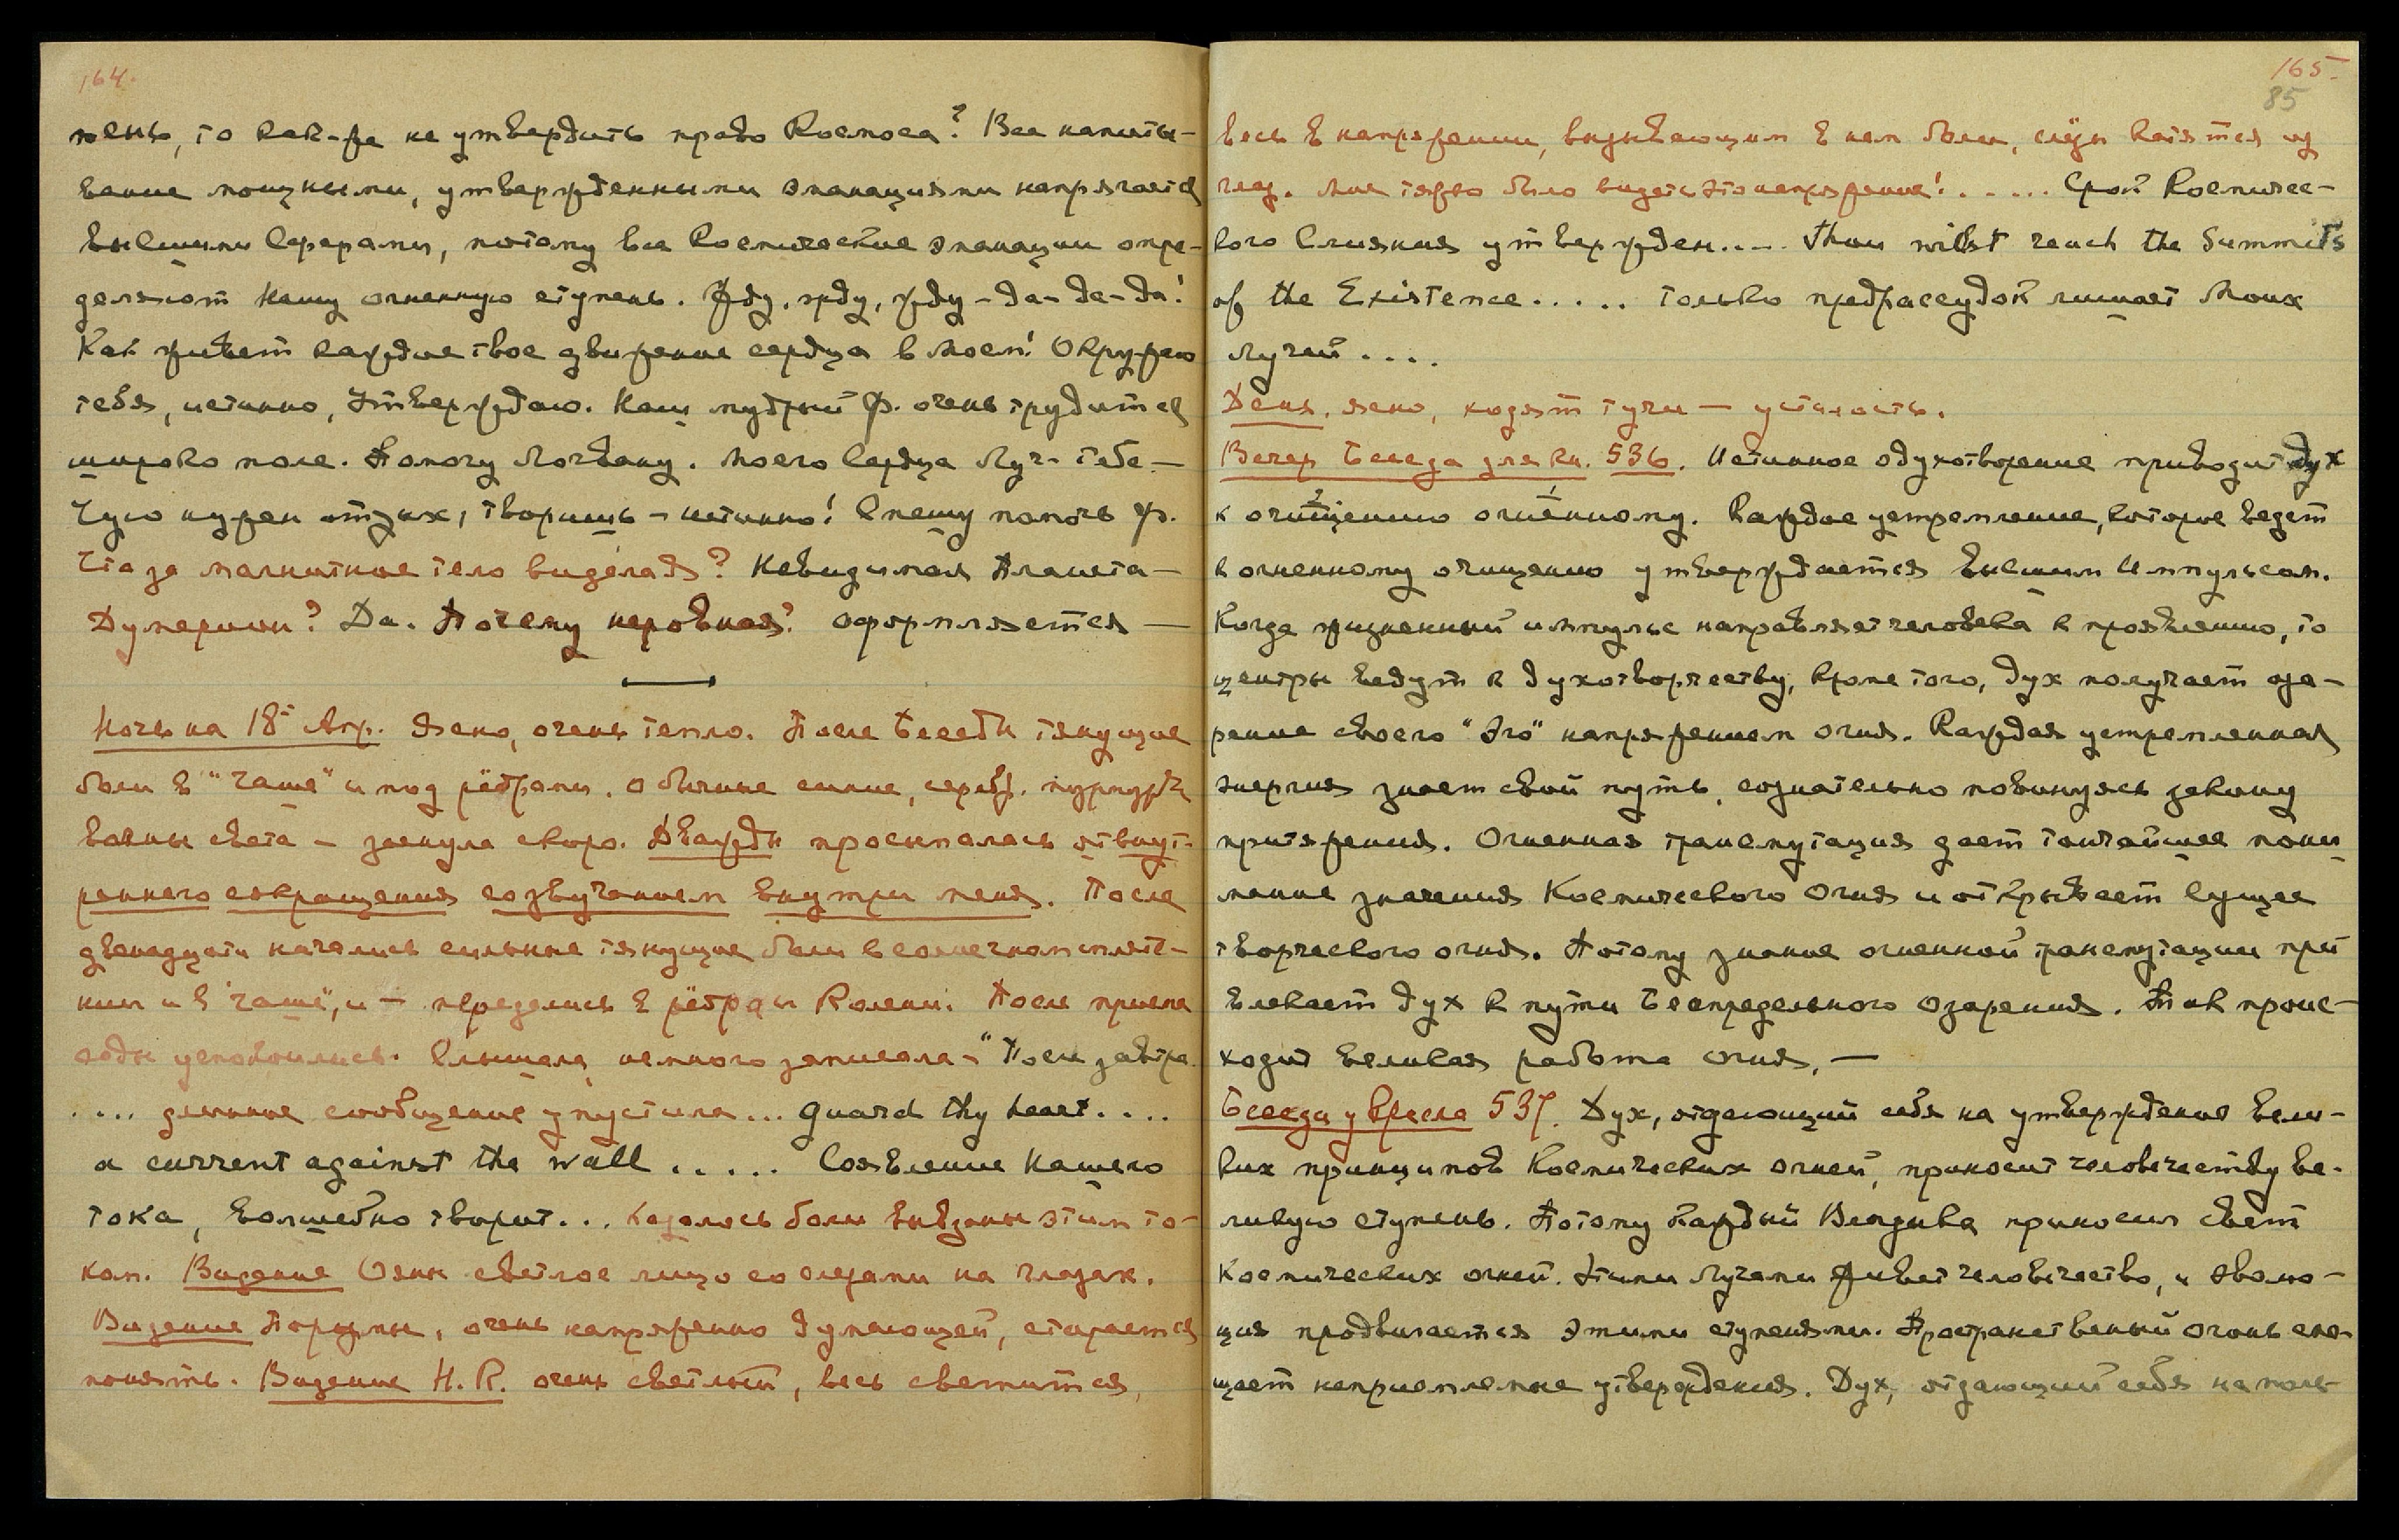 164.
мень, то как-же не утвердить право Космоса? Все напиты-
вание мощными, утвержденными эманациями напрягается
высшими сферами, потому все космические эманации опре-
деляют нашу огненную ступень. Жду, жду, жду - да- да- да!
Как живет каждое твое движение сердца в моем! Окружаю
тебя, истинно, утверждаю. Наш мудрый Ф. очень трудится
широко поле. Помогу Логвану. Моего сердца Луч- тебе.—
Чую нужен отдых, творишь - истинно! Спешу помочь Ф.
Что за магнитное тело видела Я? Невидимая планета —
Думерион? Да. Почему неровная? Оформляется —
Ночь на 18 Апр. Ясно, очень тепло. После Беседы тянущие
боли в "чаше" и под рёбрами. Обычные синие, серебр. пурпурн
волны света - заснула скоро. Дважды просыпалась от внут-
реннего сокращения созвучанием внутри меня. После
двенадцати начались сильные тянущие боли в солнечном сплете-
нии и в "чаше", и - переделись в рёбра и колени. После приема
соды успокоились. Слышала, немного записала -" После завтра
.... длинные сообщение упустила... Guard thy heart....
a current against the wall ..... Соявление Нашего
тока, волшебно творит... Казалось боли вызваны этим то-
ком. Видение Ояны светлое лицо со слезами на глазах.
Видение Порумы, очень напряженно думающей, старается
понять. Видение Н.К. очень светлый, весь светится,
165.
85
весь в напряжении, вызывающим в нем боли, слёзы катятся из
глаз. Мне тяжко было видеть это напряжение!..... Срок Космичес-
кого Слияния утвержден.... Thou wilst reach the Summits
of the Existence..... Только предрассудок лишает Моих
Лучей ....
День, ясно, ходят тучи — усталость.
Вечер Беседа для кн. 536. Истинное одухотворение приводит дух
к очищению огненному. Каждое устремление, которое ведет
к огненному очищению утверждается высшим Импульсом.
Когда жизненный импульс направляет человека к проявлению, то
центры ведут к духотворчеству, кроме того, дух получает оза-
рение своего "Эго" напряжением огня. Каждая устремленная
энергия знает свой путь, сознательно повинуясь закону
притяжения. Огненная трансмутация дает тончайшее пони
мание значения Космического Огня и открывает сущее
творческого огня. Потому знание огненной трансмутации при
влекает дух к пути Беспредельного озарения. Так проис-
ходит великая работа огня. —
Беседа у кресла 537. Дух, отдающий себя на утверждение вели-
ких принципов Космических огней, приносит человечеству ве-
ликую ступень. Потому каждый Владыка приносил свет
Космических огней. Этими Лучами живет человечество, и эволю-
ция продвигается этими ступенями. Пространственный огонь спо-
щает неприемлемые утверждения. Дух, отдающий себя на поль-